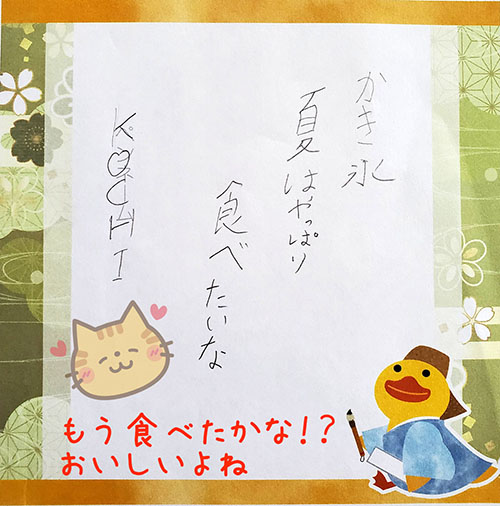 かき氷
夏はやっぱり
食べたいな
KOCHI
もう食べたかな!?
おいしいよね